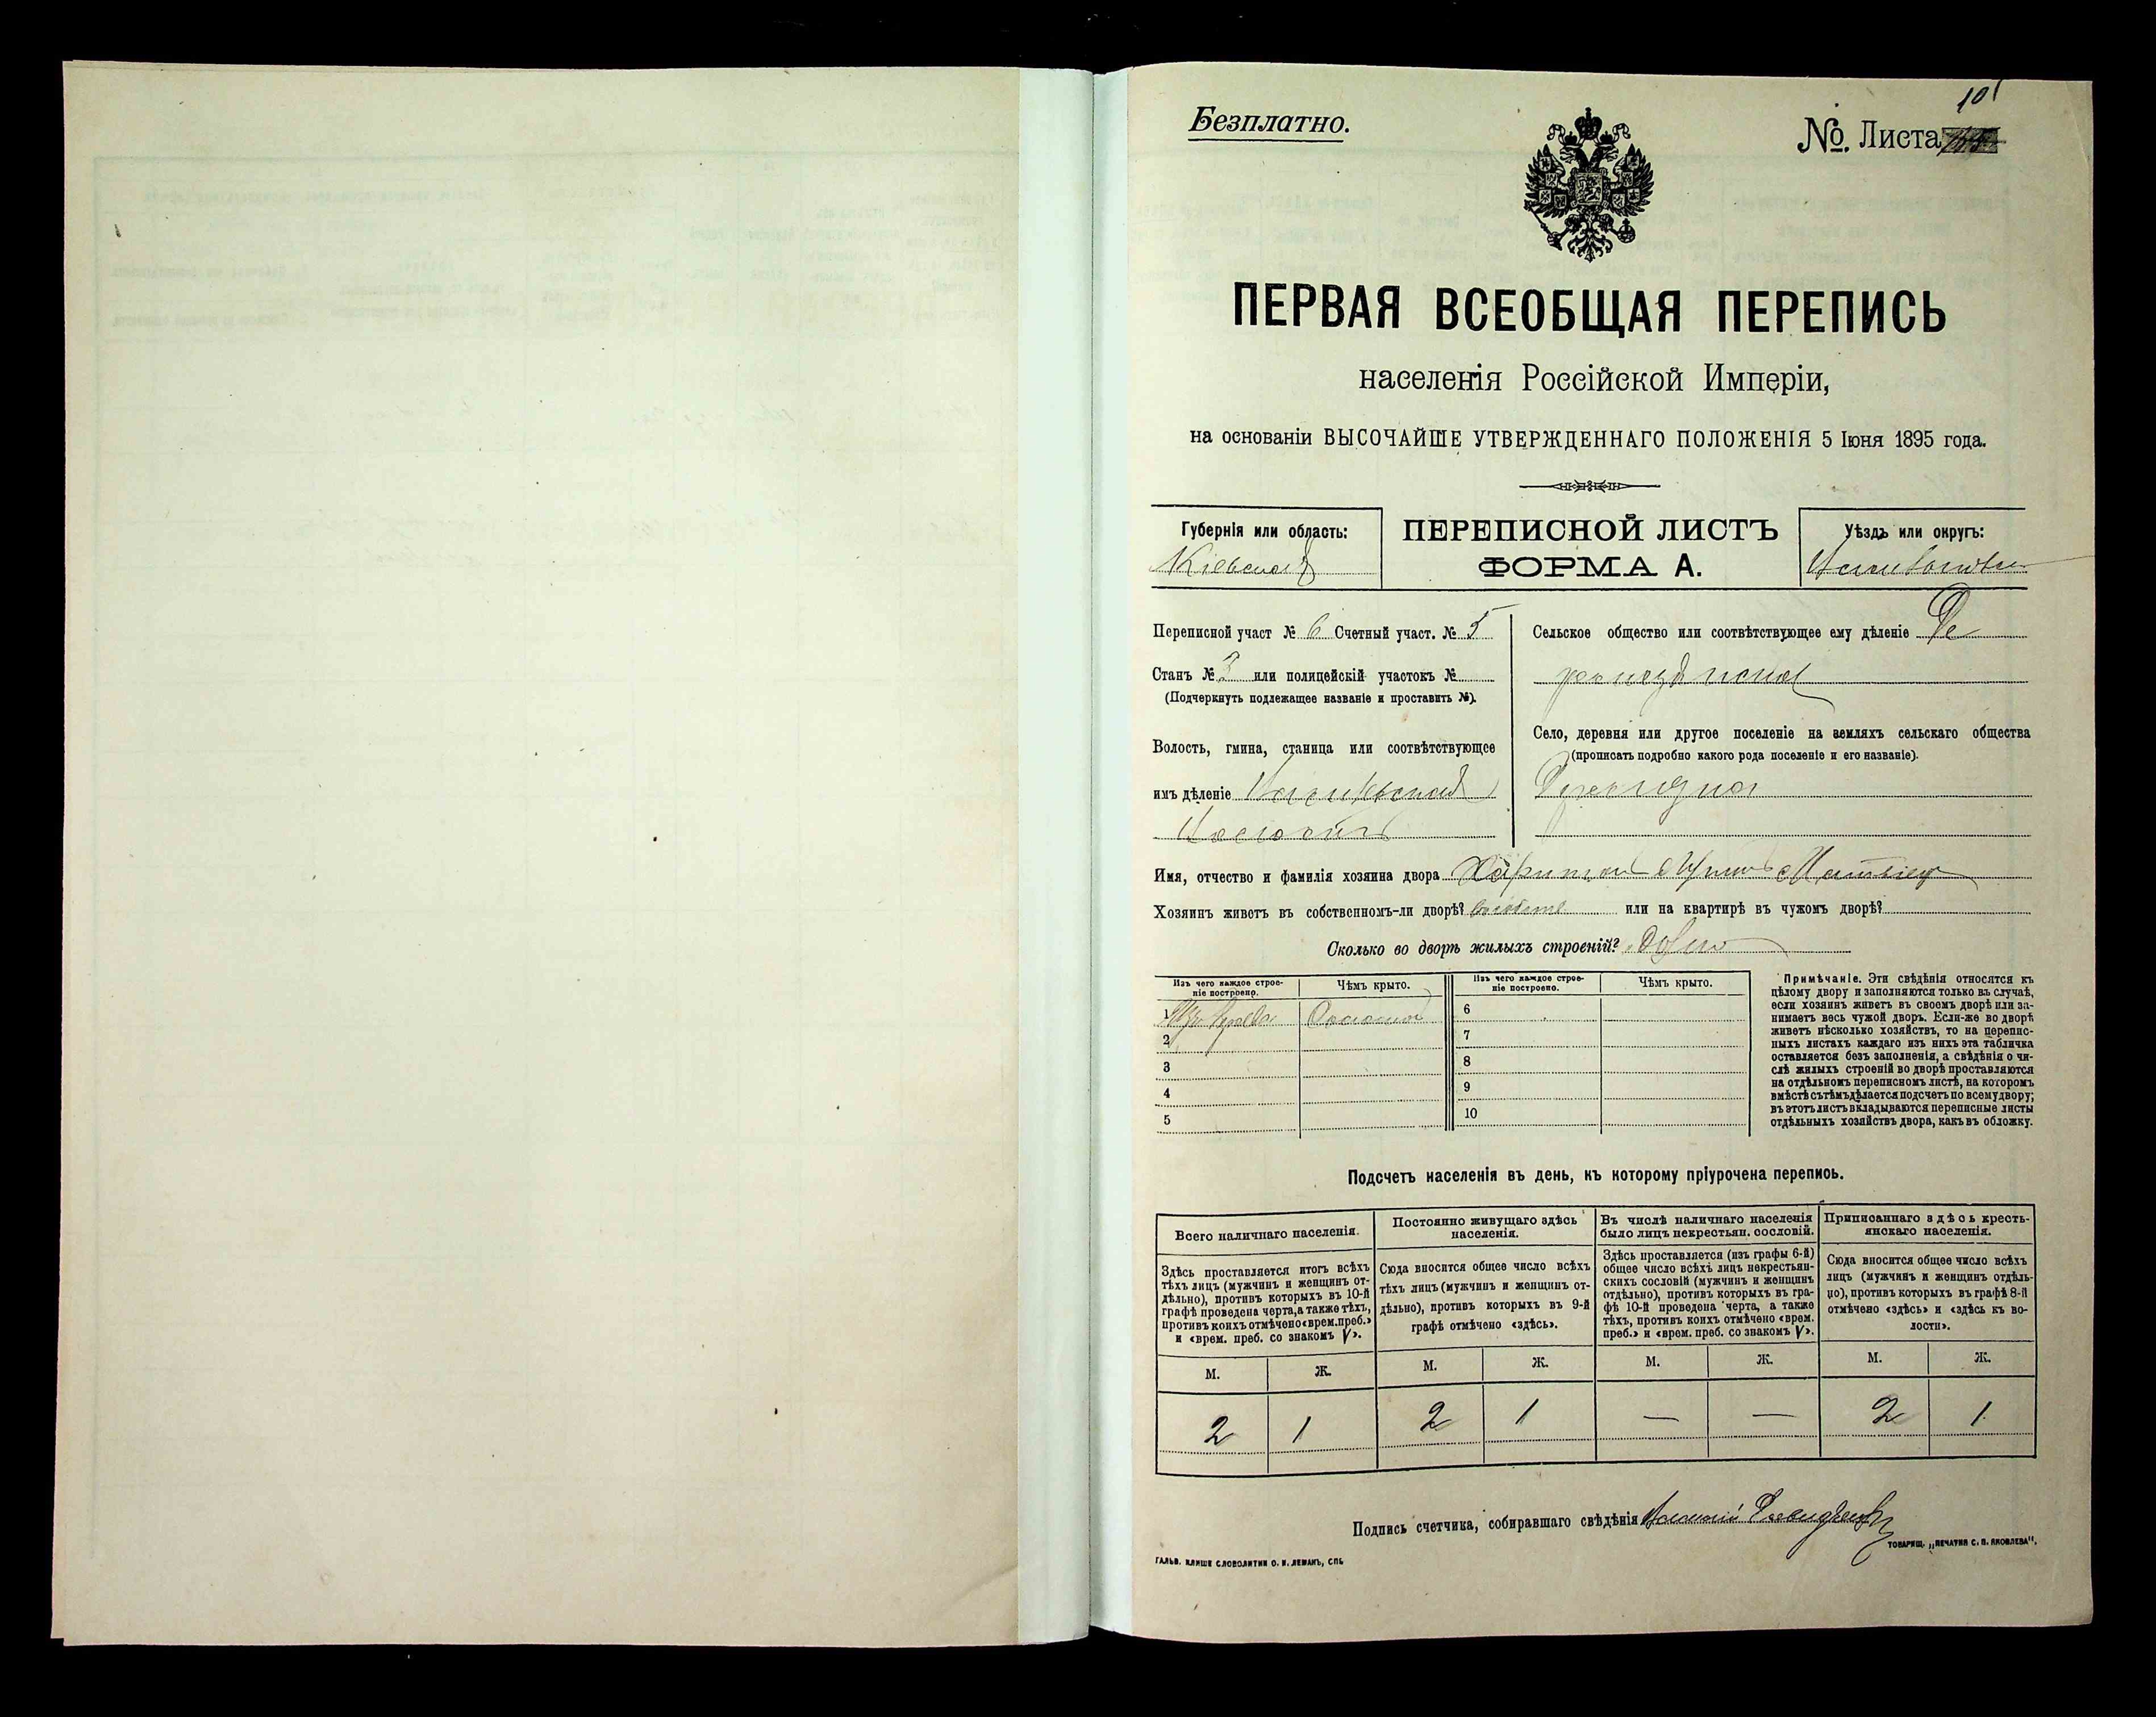 Безплатно.
101
№. Листа
ПЕРВАЯ ВСЕОБЩАЯ ПЕРЕПИСЬ
населенія Россійской Имперіи,
на основаніи ВЫСОЧАЙШЕ УТВЕРЖДЕННАГО ПОЛОЖЕНІЯ 5 Іюня 1895 года.
Губернія или область:
Кіевская
ПЕРЕПИСНОЙ ЛИСТЪ
ФОРМА А.
Уѣздъ или округъ:
Переписной участ № 6 Счетный участ. № 5
Станъ № 3 или полицейскій участокъ №
(Подчеркнуть подлежащее названіе и проставить №).
Волость, гмина, станица или соотвѣтствующее
имъ дѣленіе
Сельское общество или соотвѣтствующее ему дѣленіе
Село, деревня или другое поселеніе на земляхъ сельскаго общества
(прописать подробно какого рода поселеніе и его названіе).
Имя, отчество и фамилія хозяина двора Харитонъ
Хозяинъ живетъ въ собственномъ-ли дворѣ? или на квартирѣ въ чужомъ дворѣ?
Сколько во дворѣ жилыхъ строеній? Одно
Изъ чего каждое строе-
ніе построено.
Чѣмъ крыто.
Изъ чего каждое строе-
ніе построено.
Чѣмъ крыто.
1 Изъ дерева Соломой
2
3
4
5
6
7
8
9
10
Примѣчаніе. Эти свѣдѣнія относятся къ
цѣлому двору и заполняются только въ случаѣ,
если хозяинъ живетъ въ своемъ дворѣ или за-
нимаетъ весь чужой дворъ. Если-же во дворѣ
живетъ нѣсколько хозяйствъ, то на перепис-
ныхъ листахъ каждаго изъ нихъ эта табличка
оставляется безъ заполненія, а свѣдѣнія о чи-
слѣ жилыхъ строеній во дворѣ проставляются
на отдѣльномъ переписномъ листѣ, на которомъ
вмѣстѣ съ тѣмъ дѣлается подсчетъ по всему двору;
въ этотъ листъ вкладываются переписные листы
отдѣльныхъ хозяйствъ двора, какъ въ обложку.
Подсчетъ населенія въ день, къ которому пріурочена перепись.
Всего наличнаго населенія.
Здѣсь проставляется итогъ всѣхъ
тѣхъ лицъ (мужчинъ и женщинъ от-
дѣльно), противъ которыхъ въ 10-й
графѣ проведена черта, а также тѣхъ,
противъ коихъ отмѣчено «врем. преб.»
и «врем. преб. со знакомъ V».
Постоянно живущаго здѣсь
населенія.
Сюда вносится общее число всѣхъ
тѣхъ лицъ (мужчинъ и женщинъ от-
дѣльно), противъ которыхъ въ 9-й
графѣ отмѣчено «здѣсь».
Въ числѣ наличнаго населенія
было лицъ некрестьян. сословій.
Здѣсь проставляется (изъ графы 6-й)
общее число всѣхъ лицъ некрестьян-
скихъ сословій (мужчинъ и женщинъ
отдѣльно), противъ которыхъ въ гра-
фѣ 10-й проведена черта, а также
тѣхъ, противъ коихъ отмѣчено «врем.
преб.» и «врем. преб. со знакомъ V».
Приписаннаго здѣсь кресть-
янскаго населенія.
Сюда вносится общее число всѣхъ
лицъ (мужчинъ и женщинъ отдѣль-
но), противъ которыхъ въ графѣ 8-й
отмѣчено «здѣсь» и «здѣсь къ во-
лости».
М. Ж. М. Ж. М. Ж. М. Ж.
2 1 2 1 — — 2 1
Подпись счетчика, собиравшаго свѣдѣнія
ГАЛЬВ. КЛИШЕ СЛОВОЛИТНИ О. И. ЛЕМАНЪ, СПБ
ТОВАРИЩ. „ПЕЧАТНЯ С. П. ЯКОВЛЕВА“.